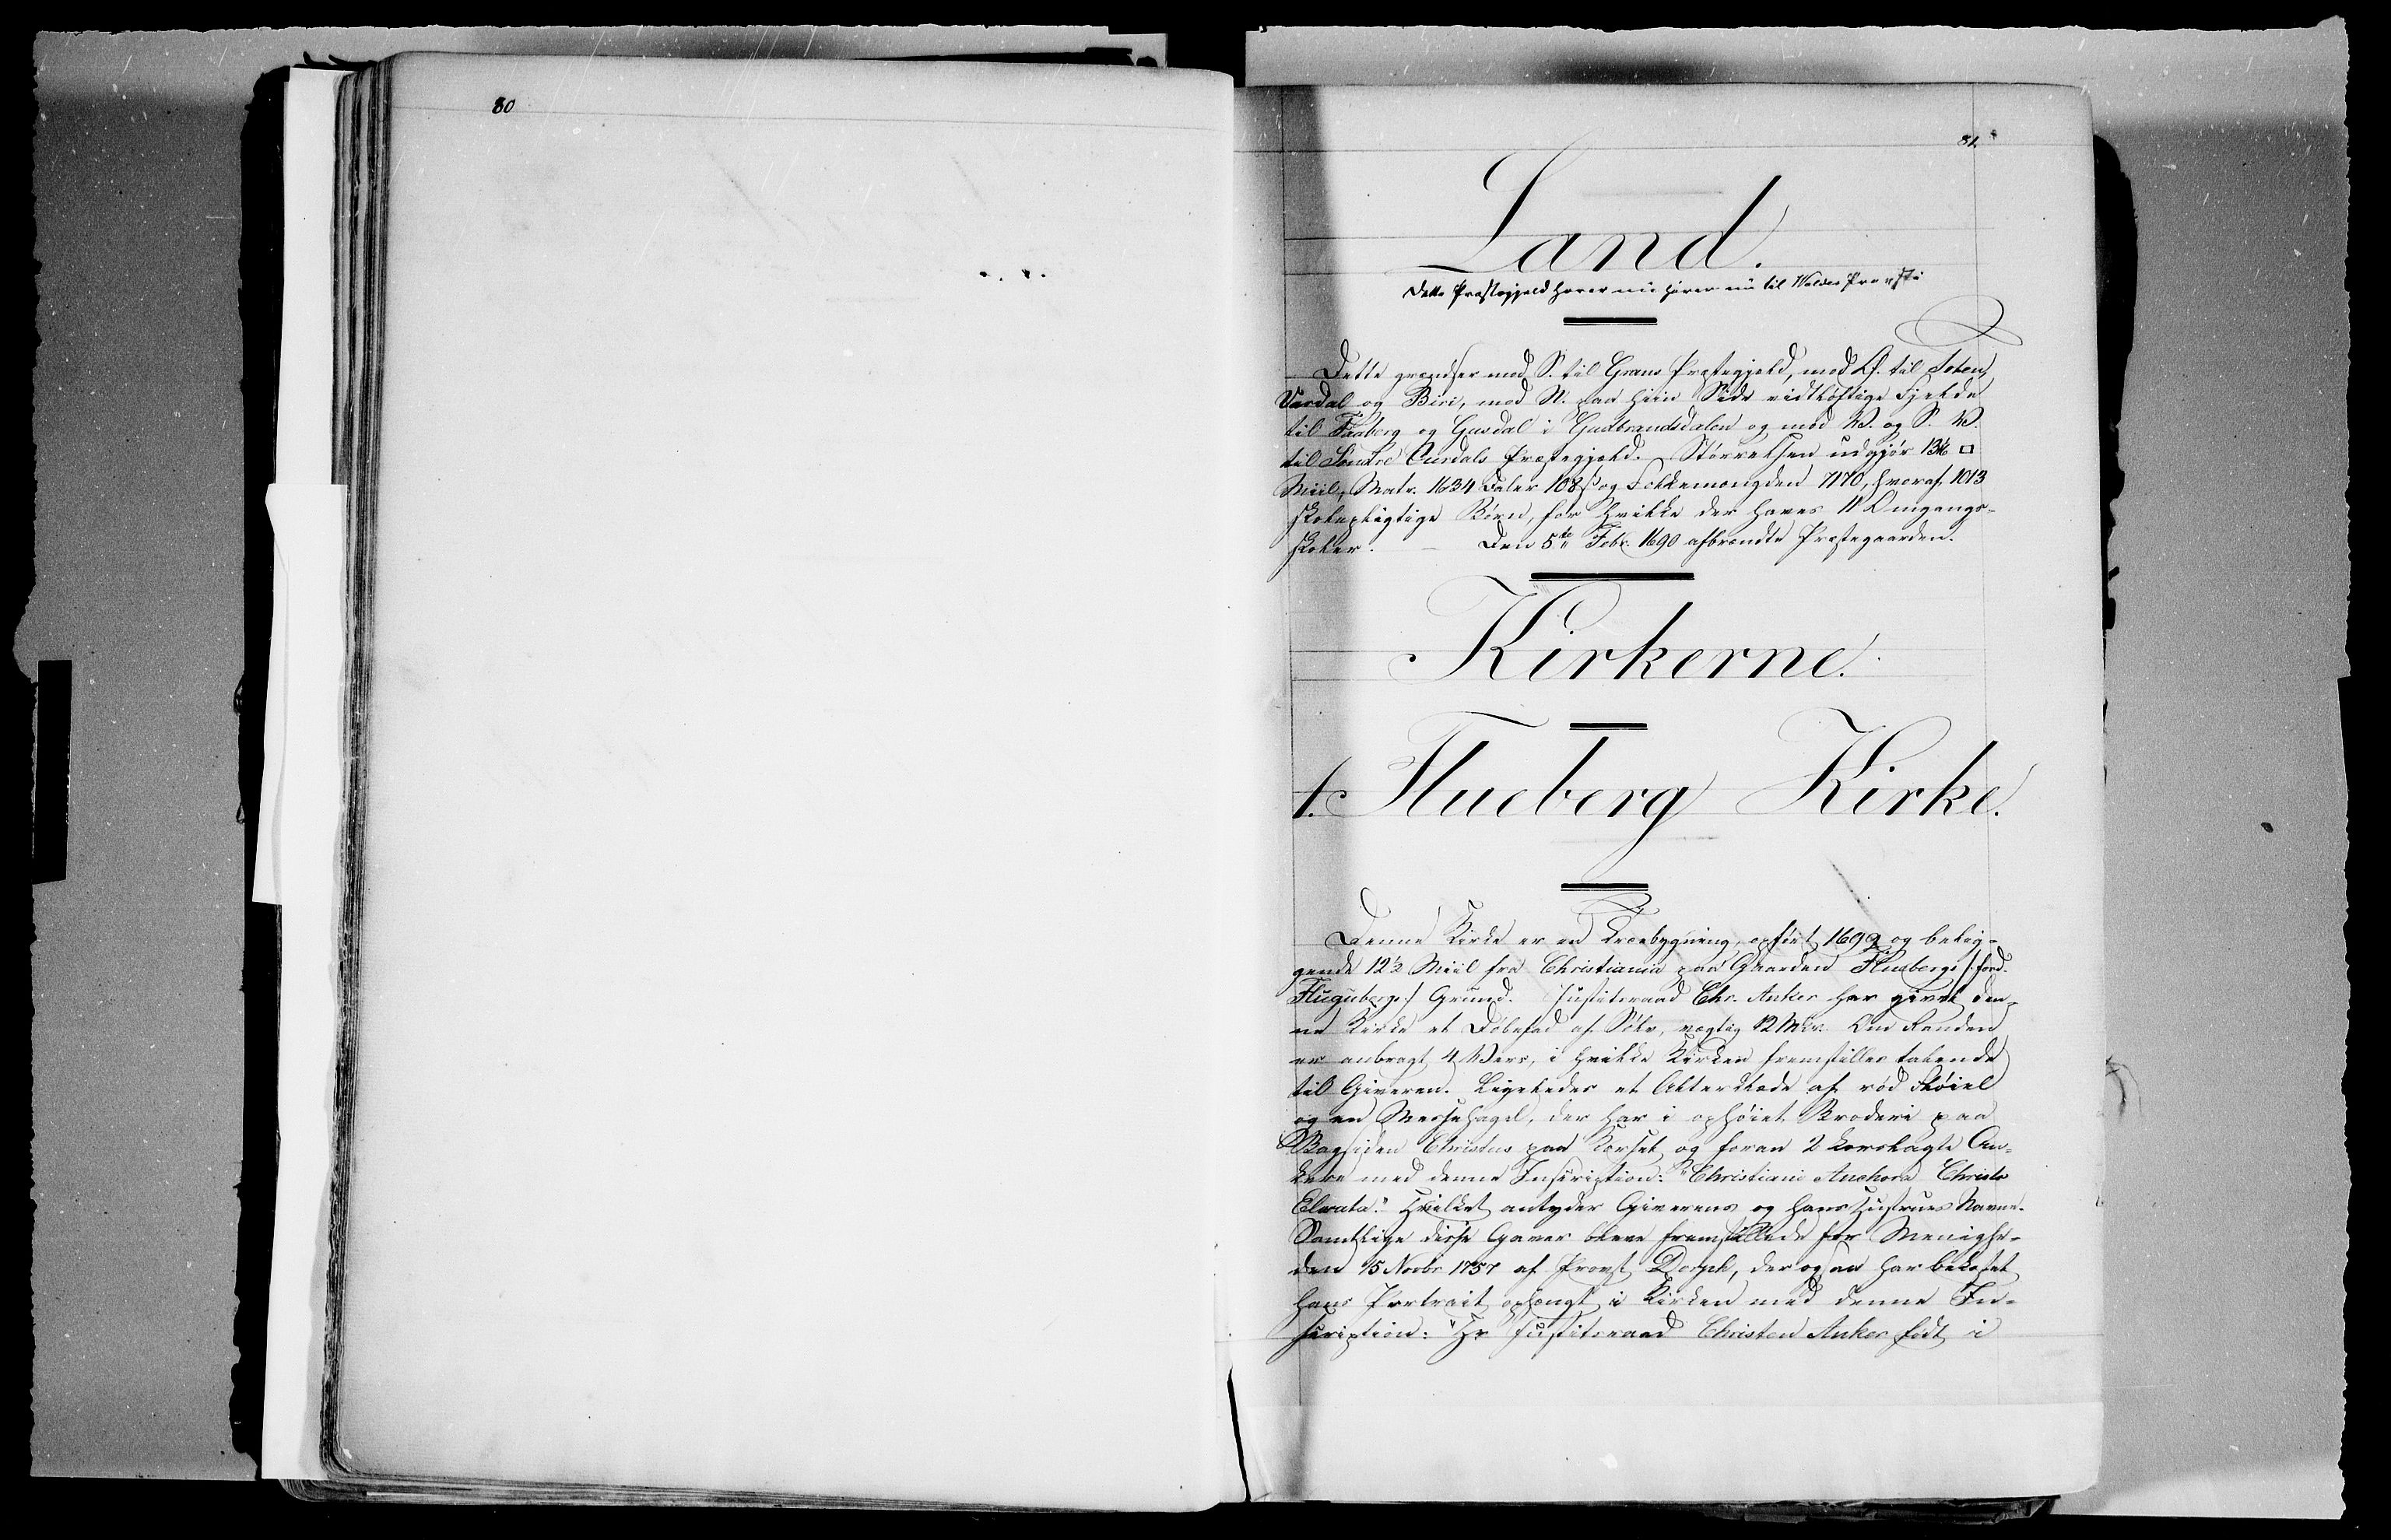 80
81.
Land.
Dette Præstegjeld hører nu hører nu til Valders Provsti
Dette grændser mod S. til Grans Præstegjeld, mod Ø. til Toten,
Vardal og Biri, mod N. paa hiin Side vidtløftige Fjelde
til Faaberg og Gusdal i Gudbrandsdalen og mod V. og S. V.
til Søndre Ourdals Præstegjeld. Størrelsen udgjør 13 □
Miil, Matr. 1634 Daler 108 ß og Folkemængden 7170, hvoraf 1013
skolepligtige Børn, for hvilke der haves 11 Omgangs-
skoler. – Den 5te Febr. 1690 afbrændte Præstegaarden.
Kirkerne.
1. Flueberg Kirke.
Denne Kirke er en Træbygning, opført 1692 og belig-
gende 12½ Miil fra Christiania paa Gaarden Fluebergs /: ford.
Flugubergs :/ Grund. Justitsraad Chr. Anker har givet den-
ne Kirke et Døbefad af Sølv, vægtig 12 Mkr. Om Randen
er anbragt 4 Vers, i hvilke Kirken fremstilles talende
til Giveren. Ligeledes et Alterklæde af rød Fløiel
og en Messehagel, der har i ophøiet Broderi paa
Bagsiden Christus paa Korset og foran 2 korslagte An-
kere med denne Inscription: "Christiani Anchora Christo
Elevata." Hvilket antyder Giverens og hans Hustrues Navne.
Samtlige disse Gaver bleve fremstillede for Menighe-
den 15 Novbr 1757 af Provst Dorph, der ogsaa har bekostet
hans Portrait ophængt i Kirken med denne In-
scription: "Hr Justitsraad Christen Anker født i